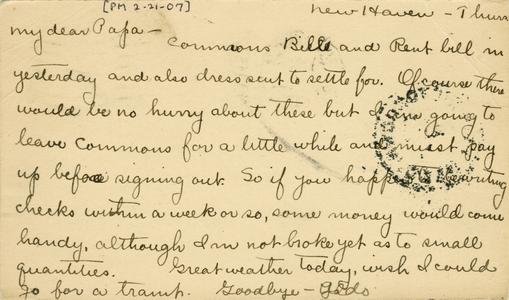 [PM 2-21-07]
New Haven - Thurs
My dear Papa -
Commons Bill and Rent bill in
yesterday and also dress suit to settle for. Of course there
would be no hurry about these but I am going to
leave Commons for a little while and must pay
up before signing out. So if you happen to be writing
checks within a week or so, some money would come
handy, although I'm not broke yet as to small
quantities. Great weather today, wish I could
go for a tramp. Goodbye -